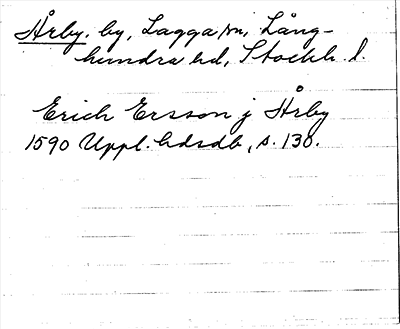 Årby. by, Lagga sn, Lång-
hundra hd, Stockh. l.
Erich Ersson j Årby
1590 Uppl. hdsdb, s. 130.